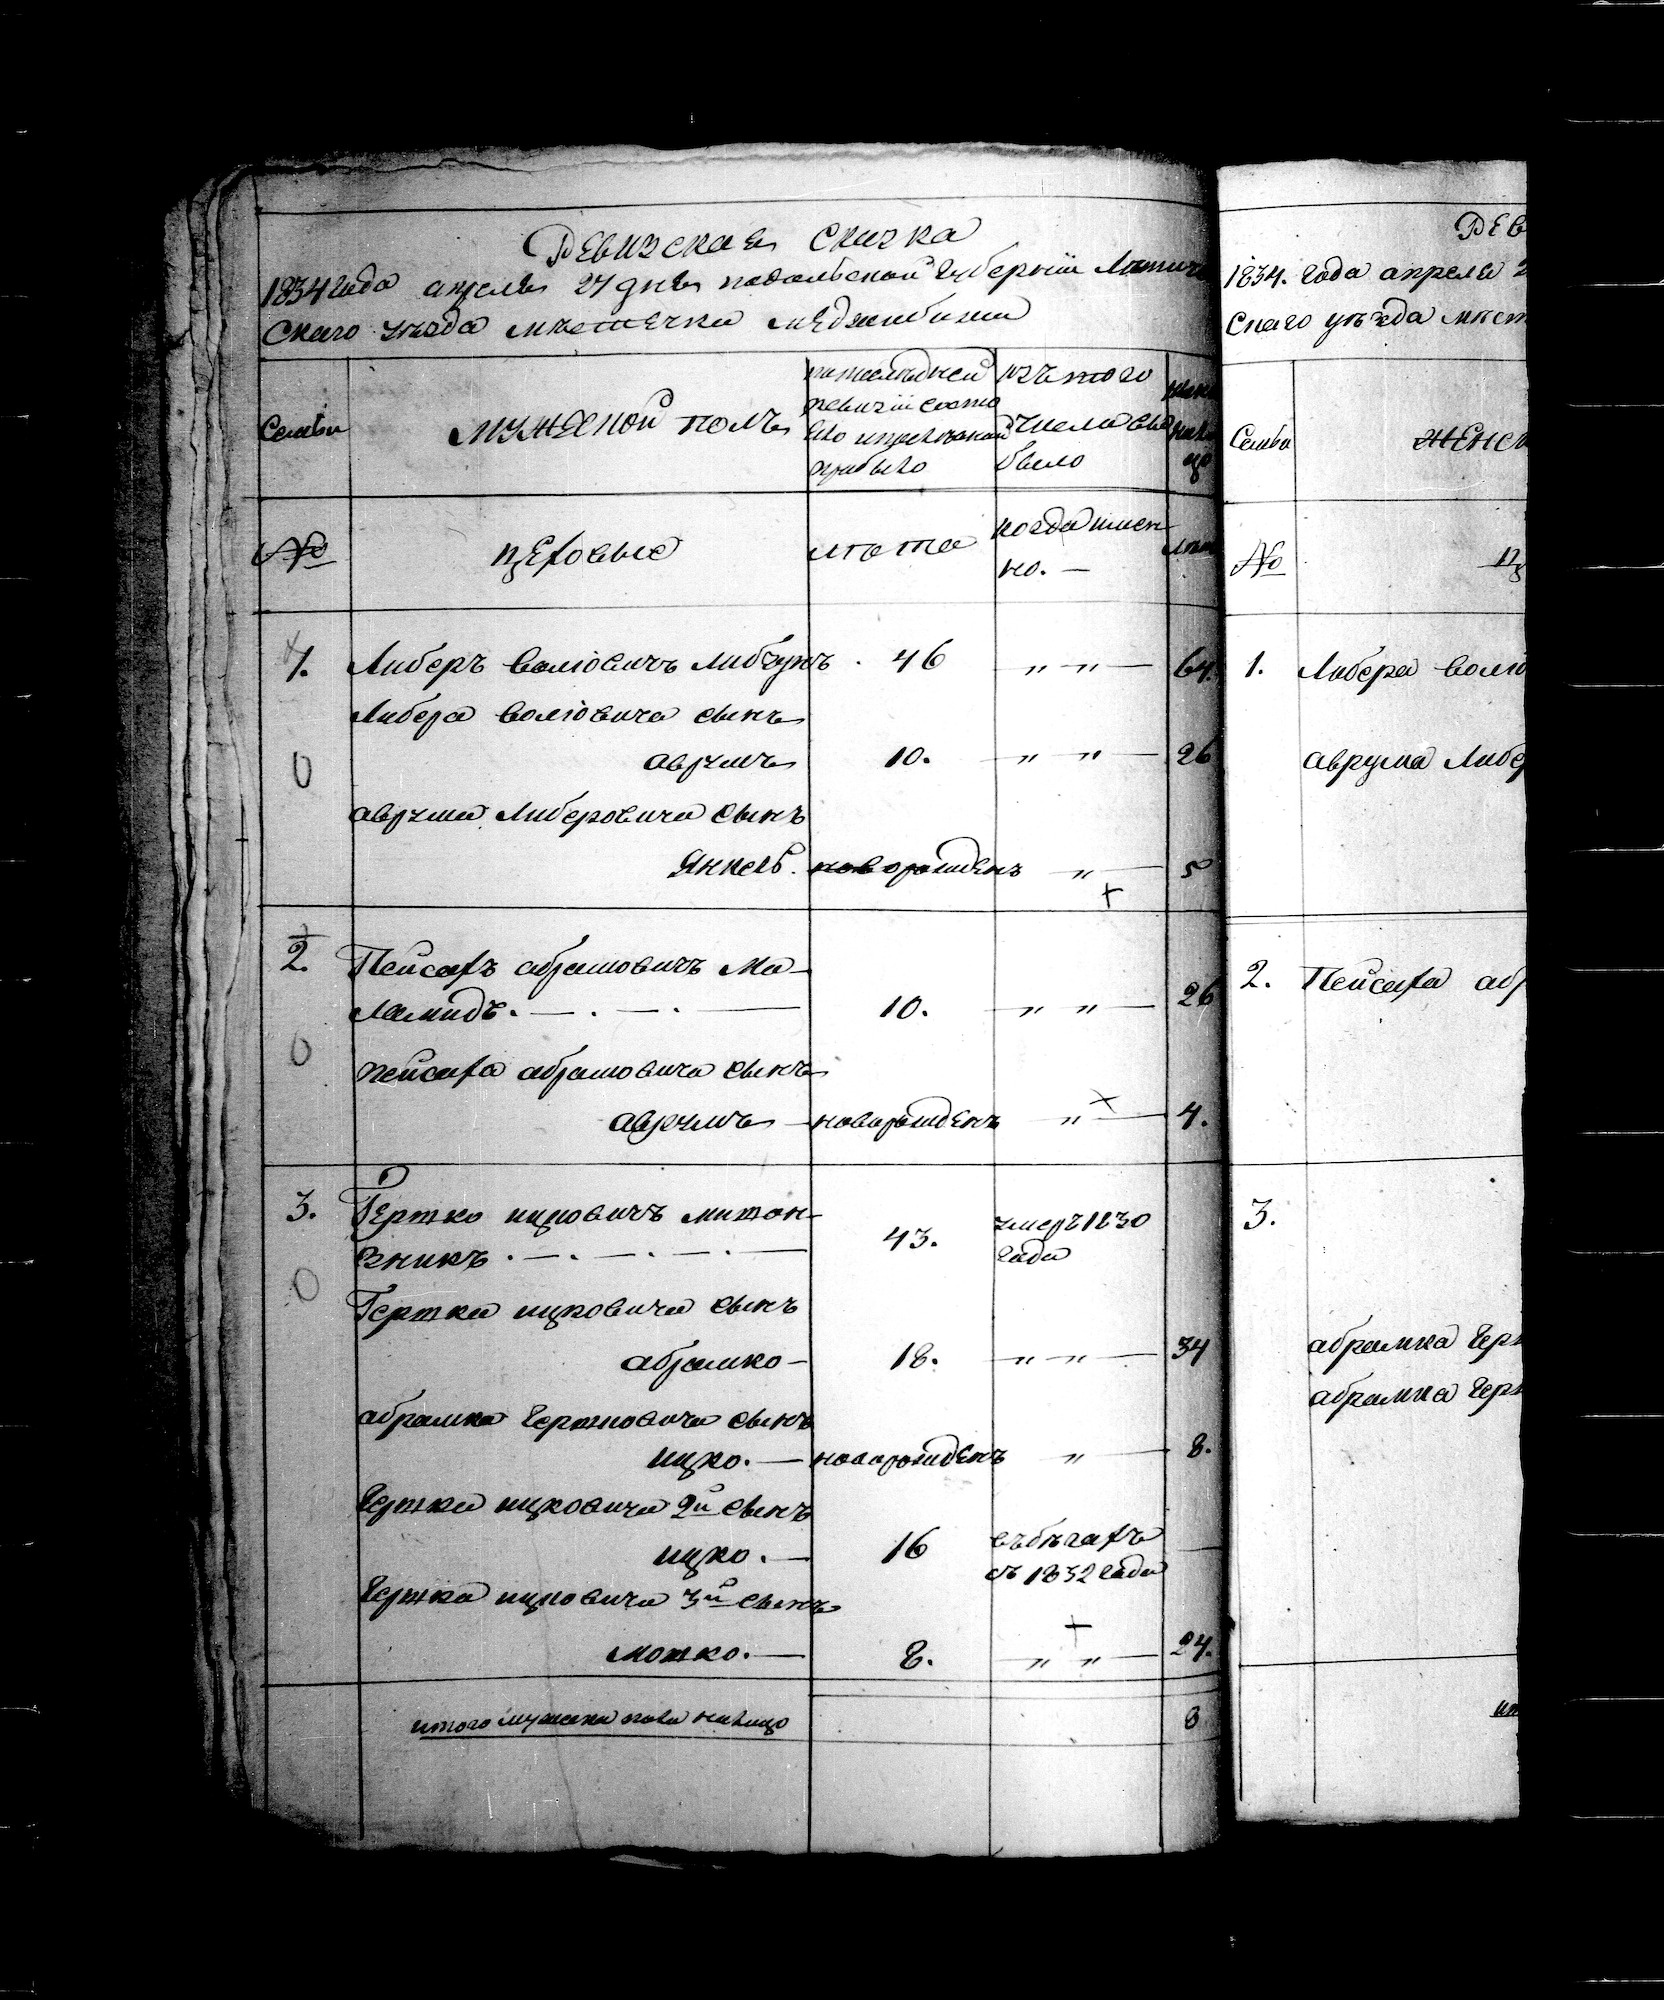 Ревизская сказка
1834 года апреля 27 дня подольской губернии Латиче
скаго уезда местечка меджибожа
Семьи
мужеской полъ
по последней
ревизіи состо
яло и после оной
прибыло
изъ того
числа вы
было
ныне
на ли
цо
№
цеховые
лета
когда имен
но. —
лета
1. Либеръ волiовичъ . 46 „ „ — 64.
Либера волiовича сынъ
аврумъ 10. „ „ — 26
аврума Либеровича сынъ
Янкель. новорожденъ „ — 5
2. Пейсахъ абрамовичъ Ма-
ламидъ. — . — . — 10. „ „ — 26
пейсаха абрамовича сынъ
аврумъ — новорожденъ „ — 4.
3. Гертко ицковичъ
зникъ . — . — . — . — 43. умеръ 1830
года
Гертка ицковича сынъ
абрамко — 18. „ „ — 34
абрамка Гершковича сынъ
ицко. — новорожденъ „ — 8.
Гертка ицковича 2й сынъ
ицко. — 16 въ бегахъ
съ 1832 года
Гертка ицковича 3й сынъ
мошко. — 8. „ „ — 24.
итого мужеска пола налицо 8
РЕВ
1834. года апреля 2
скаго уезда мест
Семьи
женс
№
ц
1. Либера волiо
аврума Либе
2. Пейсаха аб
3.
абрамка Гер
абрамка Гер
ит